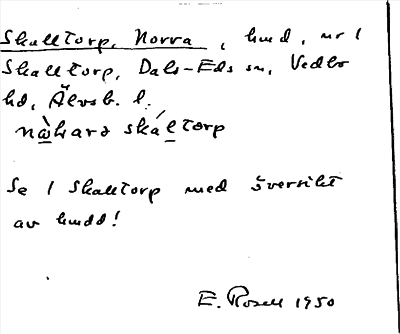 Skalltorp, Norra, hmd, nr 1
Skalltorp, Dals-Eds sn, Vedbo
hd, Älvsb. l.
nə̀hara skáltorp
Se 1 Skalltorp med översikt
av hmdd!
E. Rosell 1950